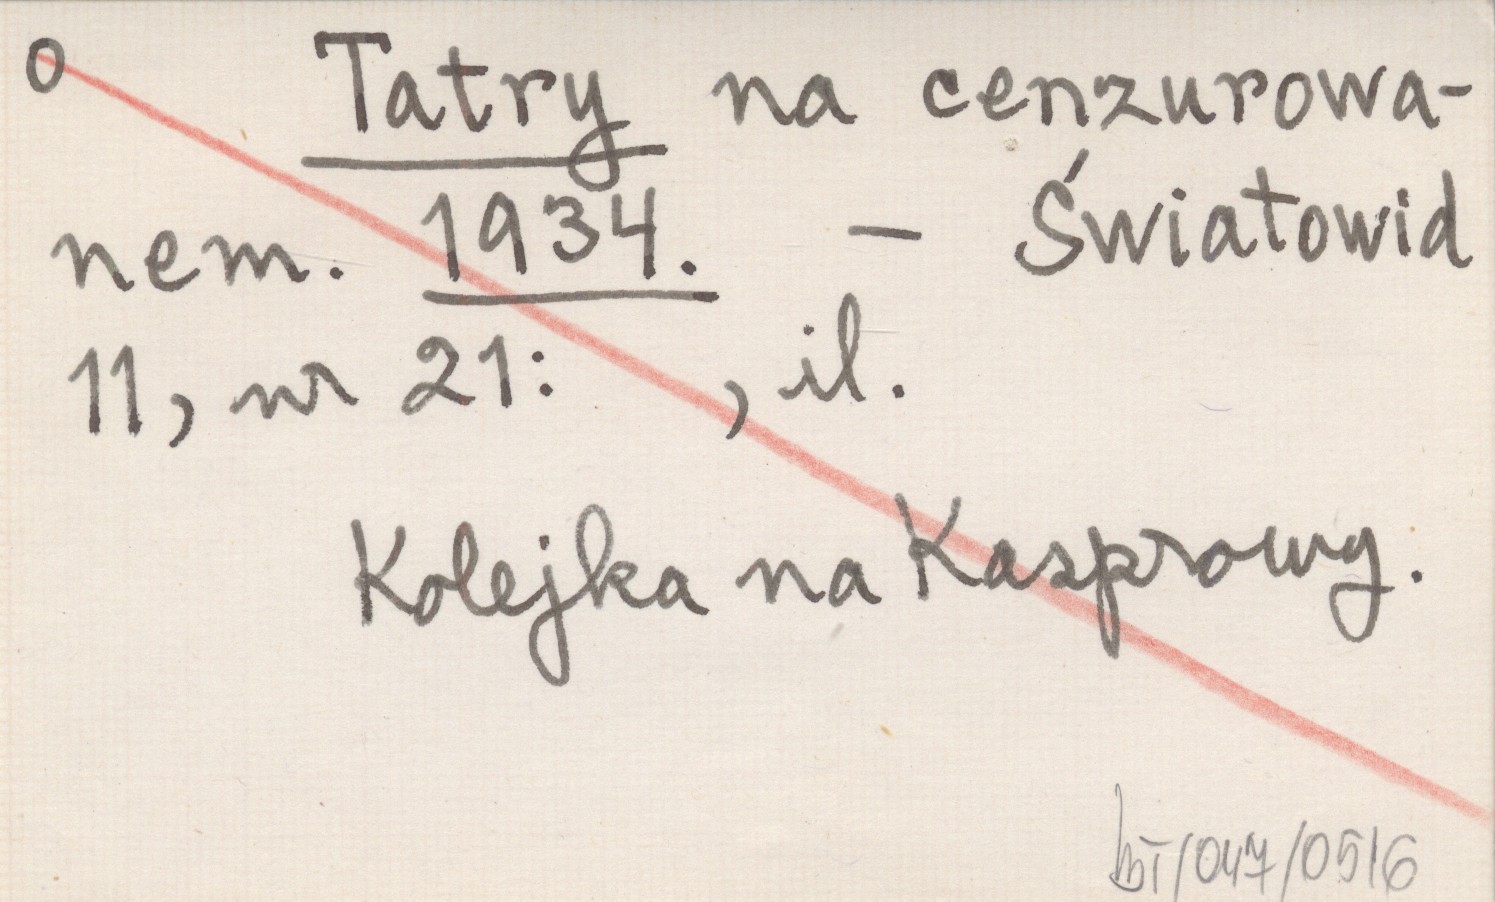 O Tatry na cenzurowa-
nem. 1934. – Światowid
11, nr 21: , il.
Kolejka na Kasprowy.
bT/047/0516